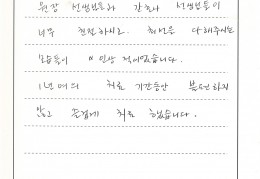 원장 선생님과 간호사 선생님들이
너무 친절하시고 최선을 다해주시는
모습들이 인상 적이었습니다.
1년여의 치료 기간동안 불편하지
않고 즐겁게 치료 했습니다.